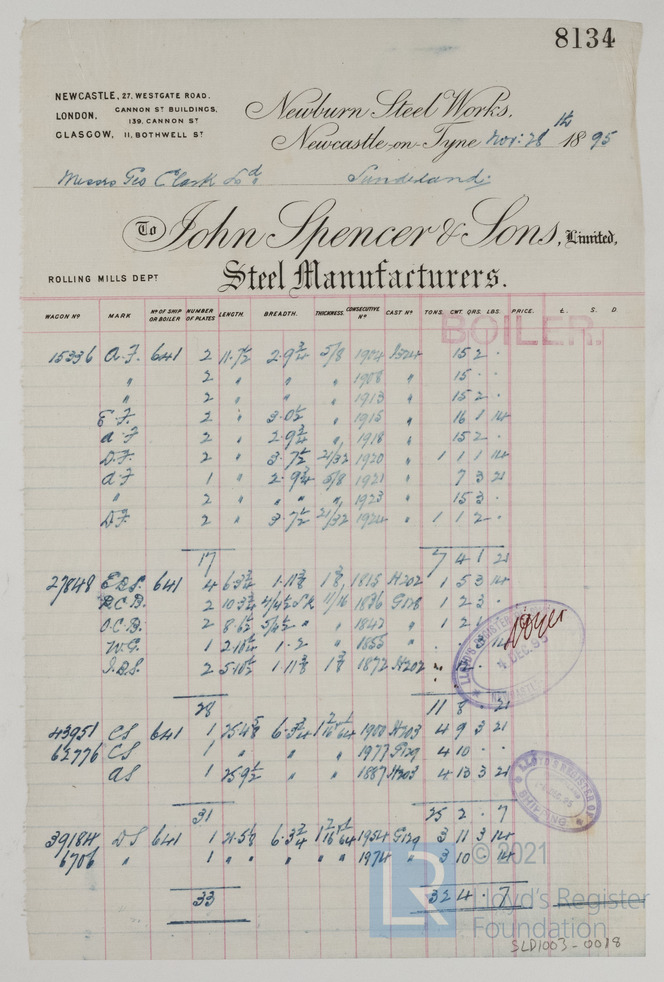 8134
NEWCASTLE, 27, WESTGATE ROAD.
LONDON, CANNON ST BUILDINGS, 139, CANNON ST
GLASGOW, 11, BOTHWELL ST
Newburn Steel Works,
Newcastle-on-Tyne Nov: 28th 1895
Messrs Geo Clark Ld Sunderland
To John Spencer & Sons, Limited,
ROLLING MILLS DEPT
Steel Manufacturers.
WAGON No MARK No OF SHIP OR BOILER NUMBER OF PLATES LENGTH. BREADTH. THICKNESS. CONSECUTIVE No CAST No TONS. CWT. QRS. LBS. PRICE. £. S. D.
BOILER.
15336 A.F. 641 2 11.7½ 2.9¾ 5/8 1904 15 2 ·
" 2 " " " 1908 " 15 · ·
" 2 " " " 1913 " 15 2 ·
E.F. 2 " 3.0½ " 1915 " 16 1 14
A F 2 " 2.9¾ " 1918 " 15 2 ·
D.F. 2 " 3.7½ 21/32 1920 " 1 1 1 14
A F 1 " 2.9¾ 5/8 1921 " 7 3 21
" 2 " " " 1923 " 15 3 ·
D.F. 2 " 3.7½ 21/32 1924 " 1 1 2 ·
17 7 4 1 21
27848 E.D.S. 641 4 6.3¾ 1.11⅞ 1⅞ 1815 H202 1 5 3 14
P.C.B. 2 10.3¾ 11/16 1836 G128 1 2 3 ·
O.C.B. 2 8.6½ " 1847 " 1 2
W.G. 1 2.10½ 1.2 " 1855 "
I.D.S. 2 5.10½ 1.11⅞ 1⅞ 1872 H202
28 11 8 21
43951 CS 641 1 25.4⅝ 6.3¾ 1900 H203 4 9 3 21
62776 CS 1 " " " 1977 G129 4 10 · ·
AS 1 25.9½ " " 1887 H203 4 13 3 21
31 25 2 · 7
39184 DS 641 1 21.5⅛ 6.3¾ 1954 G129 3 11 3 14
6706 " 1 " " " 1974 " 3 10 · 14
33 32 4 · 7
LLOYD'S REGISTER
4 DEC. 95
LLOYD'S REGISTER OF SHIPPING.
© 2021
LR
Lloyd's Register
Foundation
SLD1003-0018